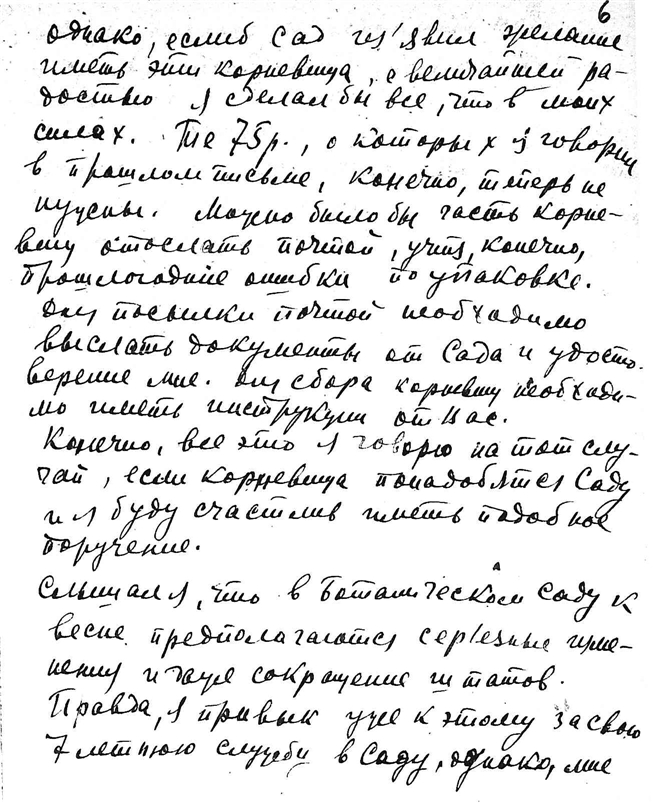 6
однако, еслиб Сад из'явил желание
иметь эти корневища, с величайшей ра-
достью я сделал бы все, что в моих
силах. Те 75р., о которых я говорил
в прошлом письме, конечно, теперь не
нужны. Можно было бы часть корне-
вищ отослать почтой, учтя, конечно,
прошлогодние ошибки по упаковке.
Для посылки почтой необходимо
выслать документы от Сада и удосто-
верение мне. Для сбора корневищ необходи-
мо иметь инструкции от Вас.
Конечно, все это я говорю на тот слу-
чай, если корневища понадобятся Саду
и я буду счастлив иметь подобное
поручение.
Слышал я, что в Ботаническом саду к
весне предполагаются сер'езные изме-
нения и даже сокращение штатов.
Правда, я привык уже к этому за свою
7летнюю службу в Саду, однако, мне